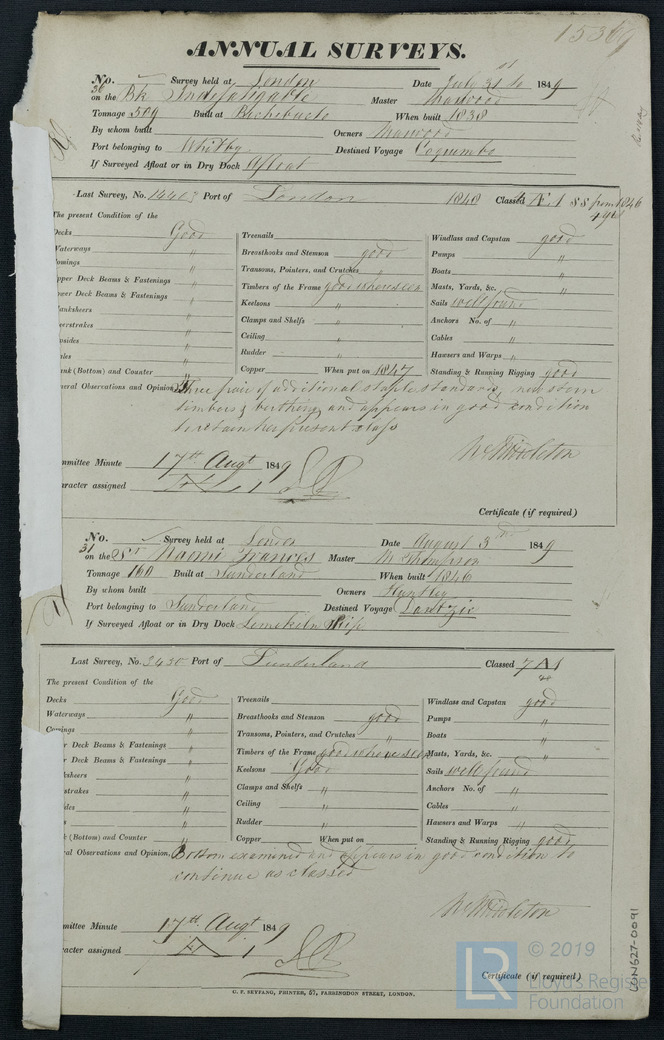 15369
ANNUAL SURVEYS.
No. Survey held at London Date July 31st 1849
30 on the Bk Indefatigable Master Harwood
Tonnage 509 Built at Richibucto When built 1838
By whom built Owners Harwood
Port belonging to Whitby Destined Voyage Coquimbo
If Surveyed Afloat or in Dry Dock Afloat
Last Survey, No. 14403 Port of London 1848 Classed Æ 1 SS from 1846
The present Condition of the
Decks Good Treenails Windlass and Capstan good
Waterways " Breasthooks and Stemson good Pumps "
omings " Transoms, Pointers, and Crutches Boats "
pper Deck Beams & Fastenings " Timbers of the Frame good where seen Masts, Yards, &c. "
wer Deck Beams & Fastenings " Keelsons " Sails well found
anksheers " Clamps and Shelfs " Anchors No. of "
eerstrakes " Ceiling " Cables "
psides " Rudder " Hawsers and Warps "
ales " Copper When put on 1847 Standing & Running Rigging good
ank (Bottom) and Counter "
eral Observations and Opinion Three pair of additional staple standards, new stern
timbers & berthing, and appears in good condition
to retain her present class
W Middleton
mmittee Minute 17th Augt 1849
aracter assigned Æ 1
Certificate (if required)
No. Survey held at London Date August 3 1849
31 on the Sr Naomi Frances Master M Thompson
Tonnage 160 Built at Sunderland When built 1846
By whom built Owners Huntley
Port belonging to Sunderland Destined Voyage Dantzic
If Surveyed Afloat or in Dry Dock Limekiln Slip
Last Survey, No. 3430 Port of Sunderland Classed 7 A 1
48
The present Condition of the
Decks Good Treenails Windlass and Capstan good
Waterways " Breasthooks and Stemson good Pumps "
Comings " Transoms, Pointers, and Crutches " Boats "
r Deck Beams & Fastenings " Timbers of the Frame good where seen Masts, Yards, &c. "
r Deck Beams & Fastenings " Keelsons Good Sails well found
ksheers " Clamps and Shelfs " Anchors No. of "
rstrakes " Ceiling " Cables "
sides " Rudder " Hawsers and Warps "
Copper When put on Standing & Running Rigging good
k (Bottom) and Counter "
al Observations and Opinion, Bottom examined and appears in good condition to
continue as classed
W Middleton
mmittee Minute 17th Augt 1849
racter assigned A 1
Certificate (if required)
C. F. SEYFANG, PRINTER, 57, FARRINGDON STREET, LONDON.
LON627-0091
LR © 2019
Lloyd's Registe
Foundation